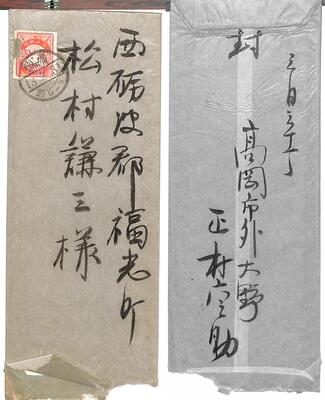 西砺波郡福光町
松村謙三様
封
三月三十一
高岡市外大野
正村宗之助